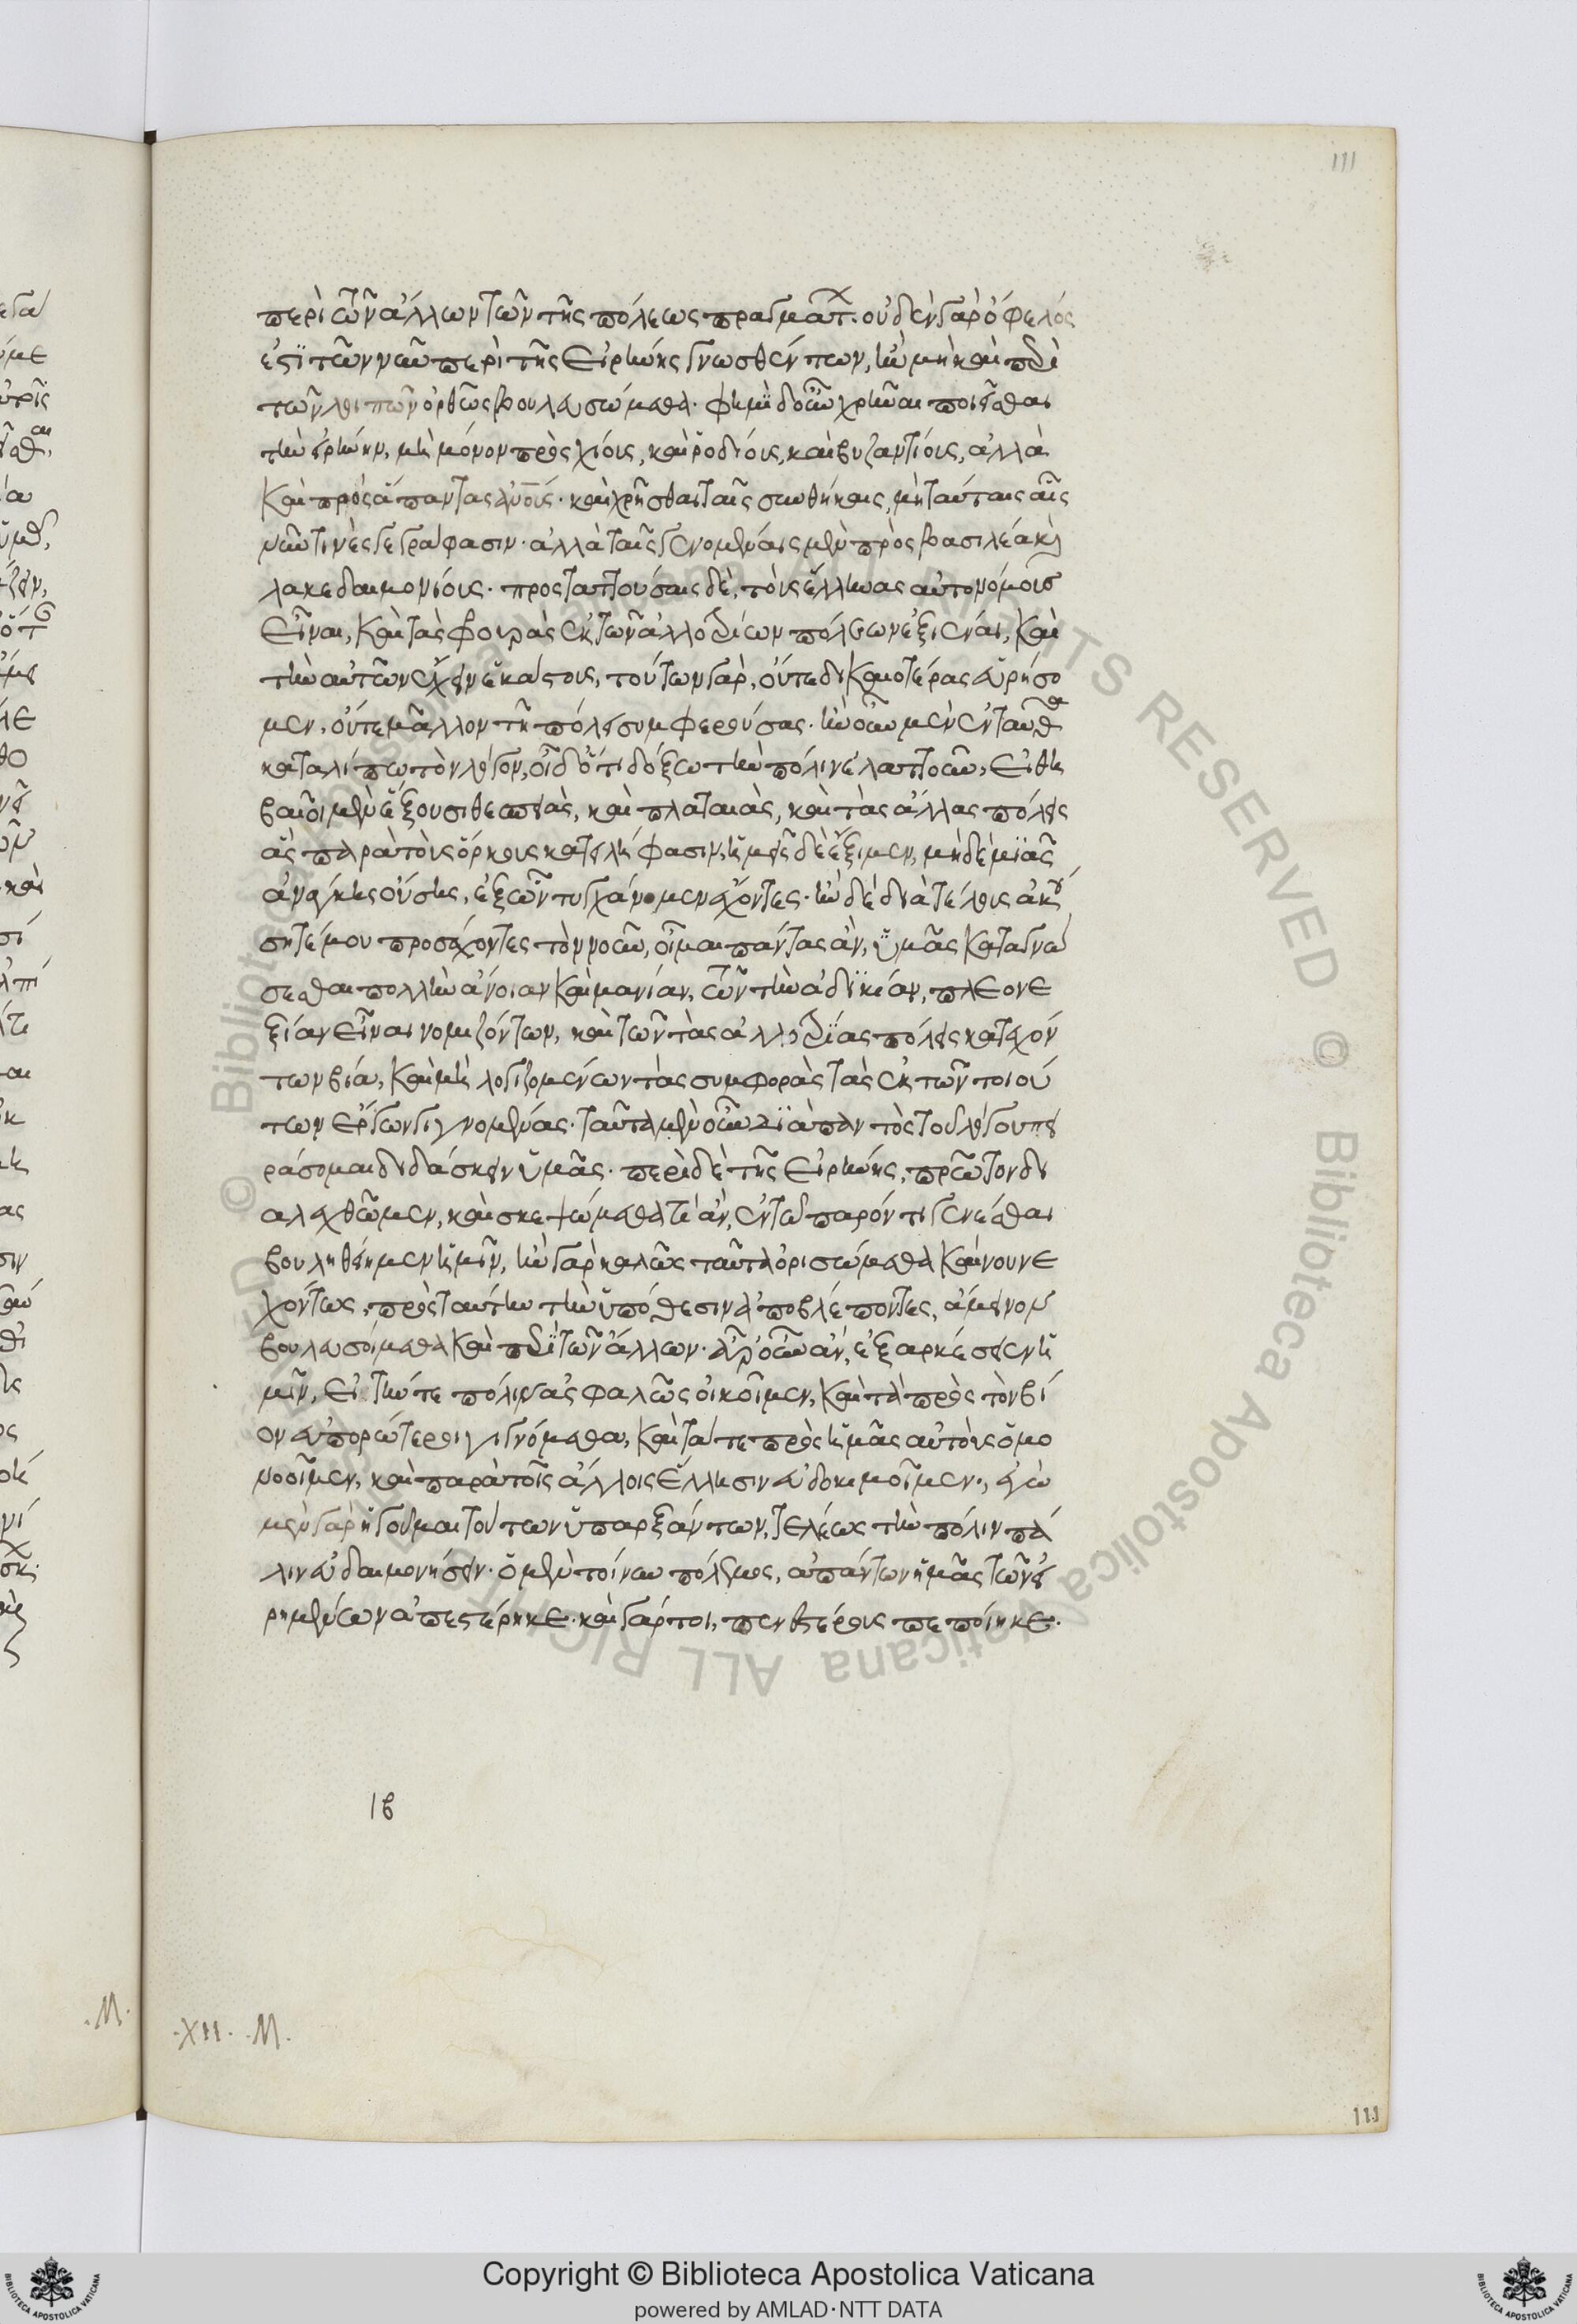 111
περὶ τῶν ἄλλων τῶν τῆς πόλεως πραγμάτ. οὐδὲν γὰρ ὄφελός
ἐστι τῶν νῦν περὶ τῆς εἰρήνης γνωσθέντων, ἢν μὴ καὶ περὶ
τῶν λοιπῶν ὀρθῶς βουλευσώμεθα. φημὶ δ οὖν χρῆναι ποιεῖσθαι
τὴν εἰρήνην, μὴ μόνον πρὸς χίους, καὶ ῥοδίους, καὶ βυζαντίους, ἀλλὰ
καὶ πρὸς ἅπαντας ἀνους. καὶ χρῆσθαι ταῖς συνθήκαις, μὴ ταύταις αἷς
νῦν τινὲς γεγράφασιν. ἀλλὰ ταῖς γενομέναις μὲν πρὸς βασιλέα κὶ
λακεδαιμονίους. προσταττούσαις δὲ, τοὺς ἕλληνας αὐτονόμους
εἶναι, καὶ τὰς φρουρὰς ἐκ τῶν ἀλλοτρίων πόλεων ἐξιέναι, καὶ
τὴν αὑτῶν ἔχειν ἑκάστους, τούτων γὰρ, οὔτε δικαιοτέρας εὑρήσο
μεν, οὔτε μᾶλλον τῇ πόλει συμφερούσας. ἢν οὖν μὲν ἐνταῦθα
καταλίπω τὸν λόγον, οἶδ ὅτι δόξω τὴν πόλιν ἐλαττοῦν, εἰ θη
βαῖοι μὲν ἕξουσι θεσπιὰς, καὶ πλαταιὰς, καὶ τὰς ἄλλας πόλεις
ἃς παρὰ τοὺς ὅρκους κατειλήφασιν, ἡμεῖς δὲ ἔξιμεν, μηδεμιᾶς
ἀνάγκης οὔσης, ἐξ ὧν τυγχάνομεν ἔχοντες. ἢν δὲ διὰ τέλους ἀκού
σητέ μου προσέχοντες τὸν νοῦν, οἶμαι πάντας ἂν, ὑμᾶς καταγνώ
σεσθαι πολλὴν ἄνοιαν καὶ μανίαν, τῶν τὴν ἀδικίαν, πλεονε
ξίαν εἶναι νομιζόντων, καὶ τῶν τὰς ἀλλοτρίας πόλεις κατεχόν
των βίᾳ, καὶ μὴ λογιζομένων τὰς συμφορὰς τὰς ἐκ τῶν τοιού
των ἔργων γιγνομένας. ταῦτα μὲν οὖν διὰ παντὸς τοῦ λόγου πει
ράσομαι διδάσκειν ὑμᾶς. περὶ δὲ τῆς εἰρήνης, πρῶτον δι
αλεχθῶμεν, καὶ σκεψώμεθα τί ἂν, ἐν τῷ παρόντι γενέσθαι
βουληθείημεν ἡμῖν, ἢν γὰρ καλῶς ταῦτα ὁρισώμεθα καὶ νουνε
χόντως, πρὸς ταύτην τὴν ὑπόθεσιν ἀποβλέποντες, ἄμεινον
βουλευσόμεθα καὶ περὶ τῶν ἄλλων. ἆρ οὖν ἂν, ἐξαρκέσειεν ἡ
μῖν, εἰ τήν τε πόλιν ἀσφαλῶς οἰκοῖμεν, καὶ τὰ πρὸς τὸν βί
ον εὐπορώτεροι γιγνόμεθα, καὶ τά τε πρὸς ἡμᾶς αὐτοὺς ὁμο
νοοῖμεν, καὶ παρὰ τοῖς ἄλλοις ἕλλησιν εὐδοκιμοῖμεν., ἐγὼ
μὲν γὰρ ἡγοῦμαι τούτων ὑπαρξάντων, τελέως τὴν πόλιν πά
λιν εὐδαιμονήσειν. ὁ μὲν τοίνυν πόλεμος, ἁπάντων ἡμᾶς τῶν εἰ
ρημένων ἀπεστέρηκε. καὶ γάρ τοι, πενεστέρους πεποίηκε.
ιβ
.M.
.XII. .M.
111
Copyright © Biblioteca Apostolica Vaticana
powered by AMLAD·NTT DATA